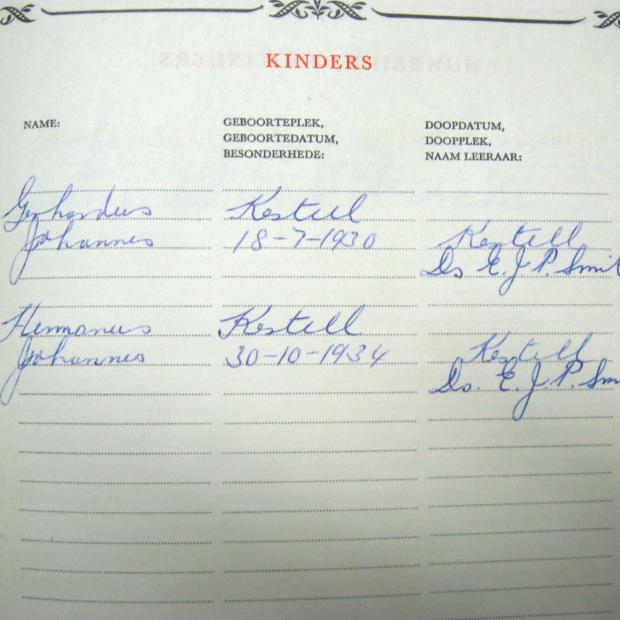 KINDERS
NAME:
GEBOORTEPLEK,
GEBOORTEDATUM,
BESONDERHEDE:
DOOPDATUM,
DOOPPLEK,
NAAM LEERAAR:
Gerhardus
Johannes
Kestell
18-7-1930
Kestell
Ds E. J. P. Smit
Hermanus
Johannes
Kestell
30-10-1934
Kestell
Ds. E. J. P. Sm